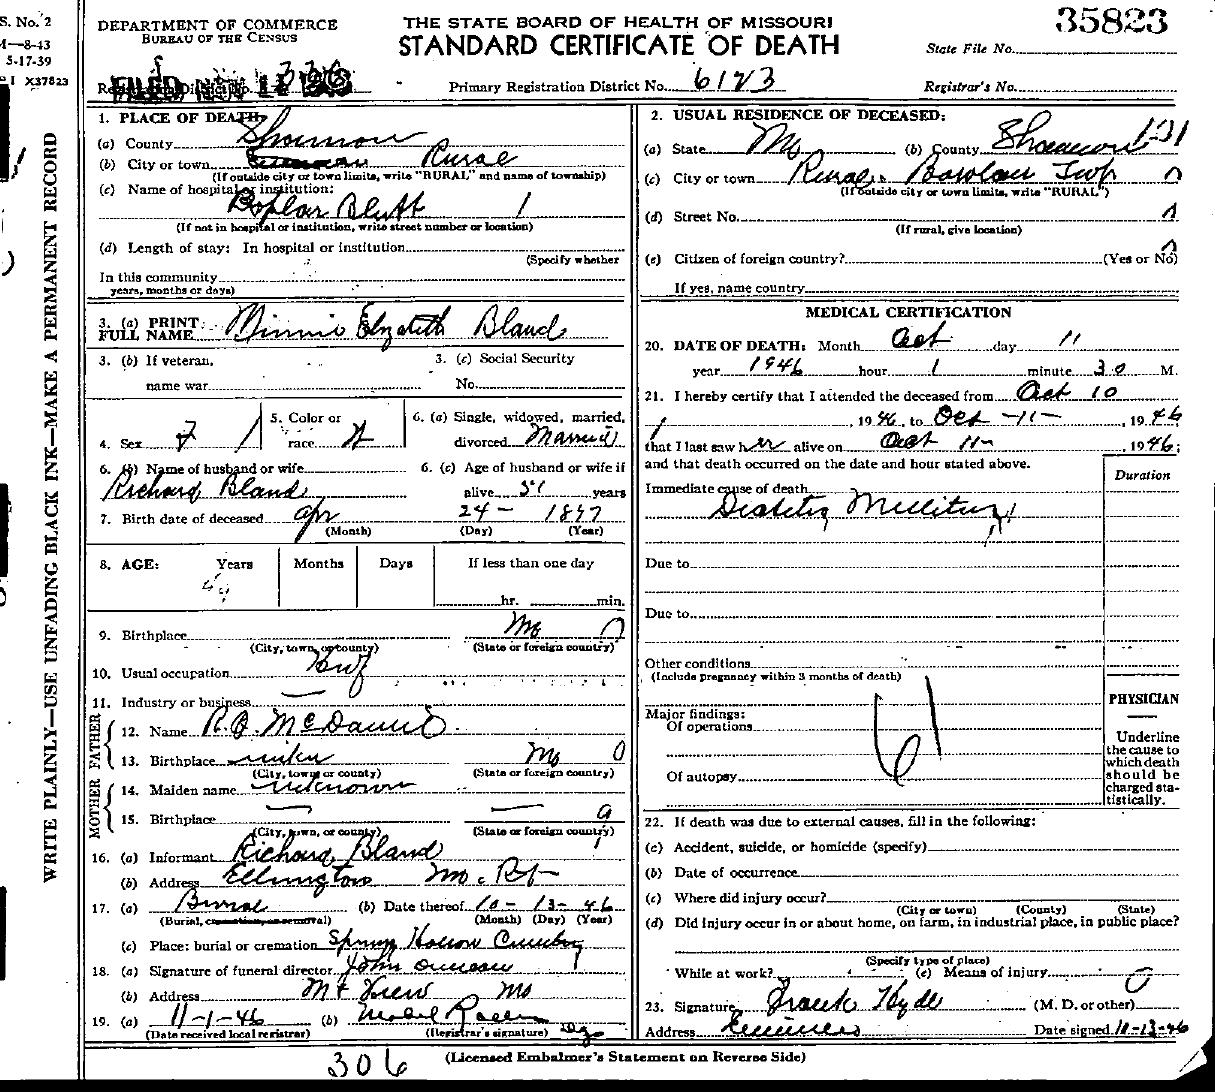 S. No. 2
M—8-43
5-17-39
I X37823
WRITE PLAINLY—USE UNFADING BLACK INK—MAKE A PERMANENT RECORD
DEPARTMENT OF COMMERCE
BUREAU OF THE CENSUS
THE STATE BOARD OF HEALTH OF MISSOURI
STANDARD CERTIFICATE OF DEATH
35823
State File No.
Primary Registration District No. 6123
Registrar's No.
1. PLACE OF DEATH:
(a) County Shannon
(b) City or town Rural
(If outside city or town limits, write "RURAL" and name of township)
(c) Name of hospital or institution:
Poplar Bluff 1
(If not in hospital or institution, write street number or location)
(d) Length of stay: In hospital or institution
(Specify whether
In this community
years, months or days)
2. USUAL RESIDENCE OF DECEASED:
(a) State Mo (b) County Shannon
(c) City or town Rural Bowlan Twp
(If outside city or town limits, write "RURAL")
(d) Street No.
(If rural, give location)
(e) Citizen of foreign country? (Yes or No)
If yes, name country
3. (a) PRINT FULL NAME Minnie Elizabeth Bland
3. (b) If veteran, name war
3. (c) Social Security No.
4. Sex F
5. Color or race W
6. (a) Single, widowed, married, divorced Married
6. (b) Name of husband or wife
Richard Bland
6. (c) Age of husband or wife if alive 51 years
7. Birth date of deceased Apr 24 - 1897
(Month) (Day) (Year)
8. AGE: Years Months Days If less than one day
49 hr. min.
9. Birthplace Mo 0
(City, town, or county) (State or foreign country)
10. Usual occupation Hwf
11. Industry or business —
FATHER
12. Name R.B. McDaniel
13. Birthplace unkn Mo 0
(City, town or county) (State or foreign country)
MOTHER
14. Maiden name unknown
15. Birthplace — — 9
(City, town, or county) (State or foreign country)
16. (a) Informant Richard Bland
(b) Address Ellington Mo. Rt
17. (a) Burial (b) Date thereof 10-13-46
(Burial, cremation, or removal) (Month) (Day) (Year)
(c) Place: burial or cremation Spring Hollow Cemetery
18. (a) Signature of funeral director John Duncan
(b) Address Mt View Mo
19. (a) 11-1-46 (b) Mabel
(Date received local registrar) (Registrar's signature)
306
MEDICAL CERTIFICATION
20. DATE OF DEATH: Month Oct day 11
year 1946 hour 1 minute 30 M.
21. I hereby certify that I attended the deceased from Oct 10
, 1946, to Oct -11-, 1946
that I last saw her alive on Oct 11-, 1946;
and that death occurred on the date and hour stated above.
Duration
Immediate cause of death
Diabetis Mellitus
Due to
Due to
Other conditions
(Include pregnancy within 3 months of death)
Major findings:
Of operations
61
Of autopsy
PHYSICIAN
Underline
the cause to
which death
should be
charged sta-
tistically.
22. If death was due to external causes, fill in the following:
(a) Accident, suicide, or homicide (specify)
(b) Date of occurrence
(c) Where did injury occur?
(City or town) (County) (State)
(d) Did injury occur in or about home, on farm, in industrial place, in public place?
(Specify type of place)
While at work? (e) Means of injury 0
23. Signature Frank Hyde (M. D. or other)
Address Eminence Date signed 10-13-46
(Licensed Embalmer's Statement on Reverse Side)